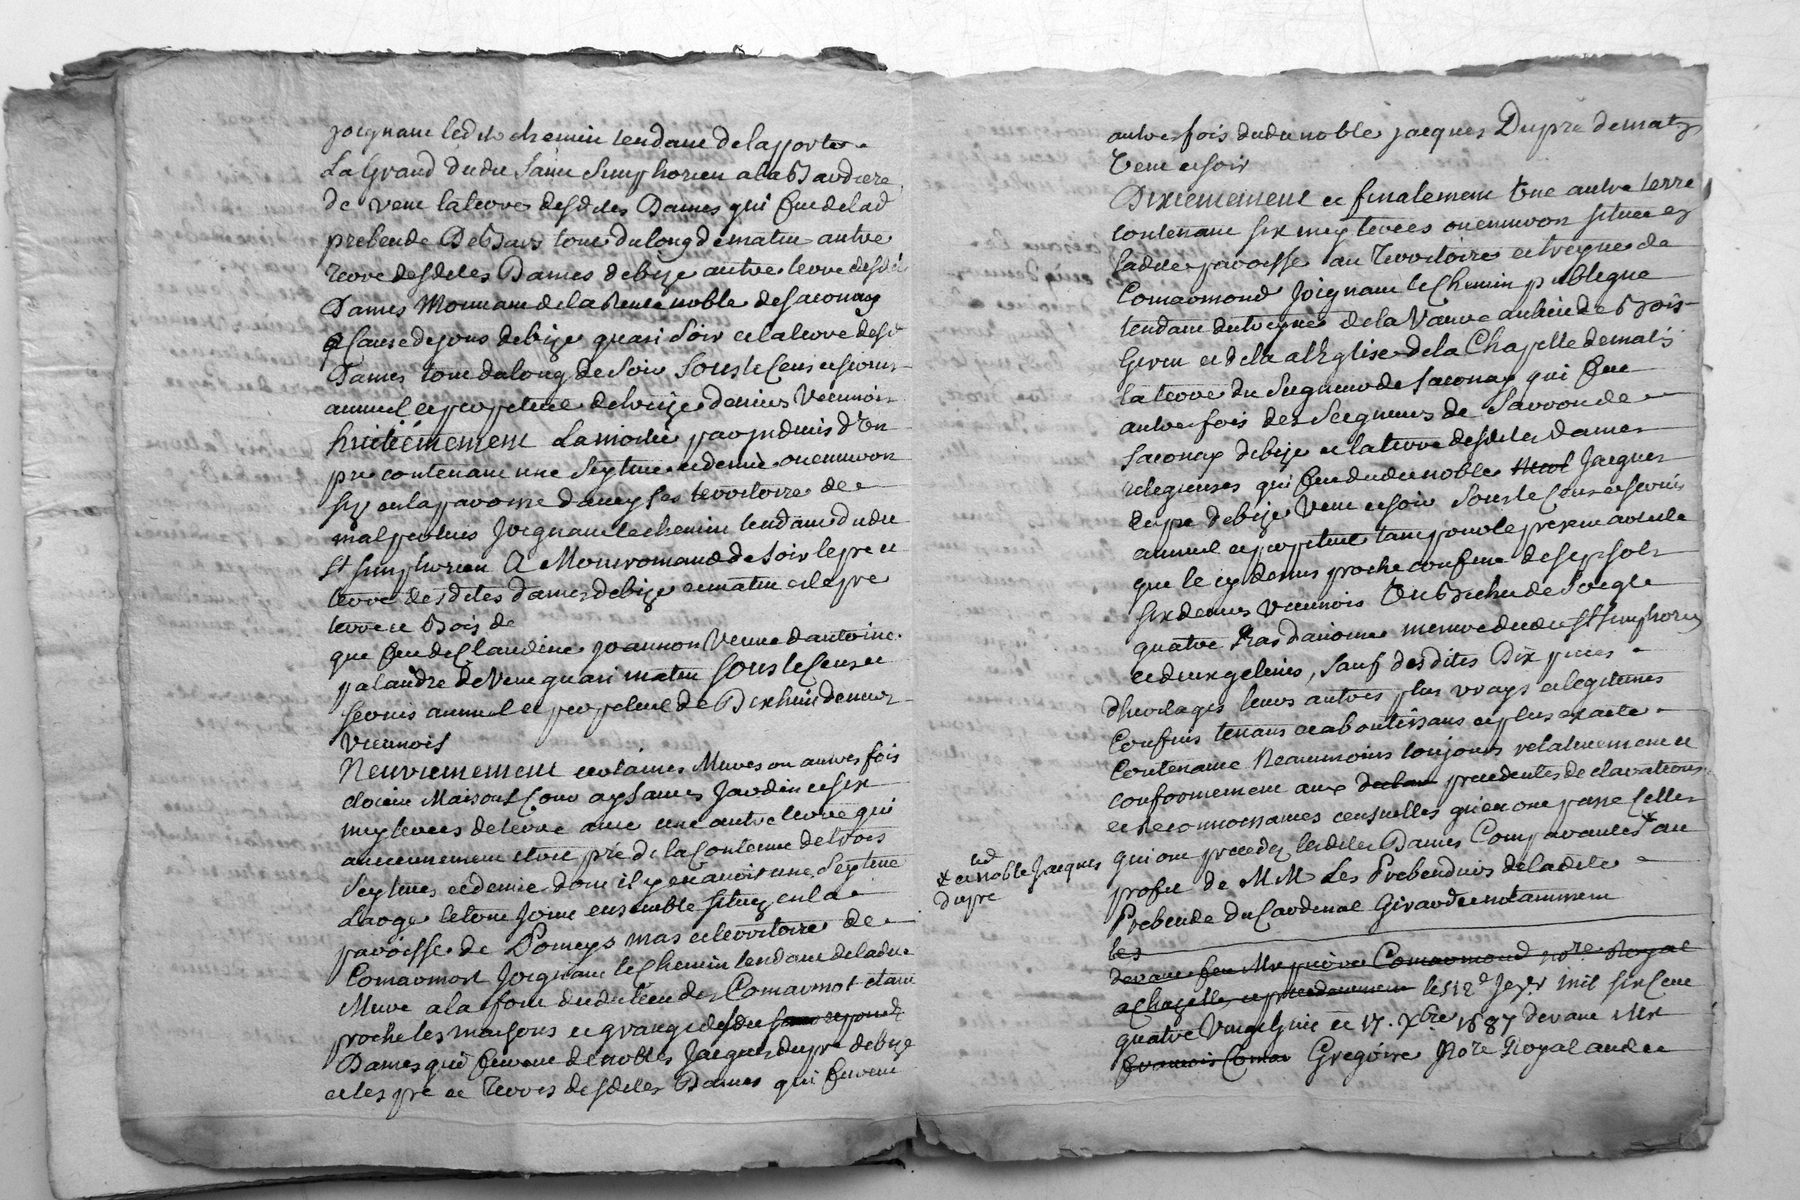 joignant ledit chemin tendant de la porte
La Grand dudit Saint Simphorien a la Bardiere
de vent la terre desdites Dames qui fut de lad
prebende De Bars tout du long de matin autre
Terre desdites Dames de bize autre terre desdi
Dames Mouvant de la Rente noble de Saconay
a Cause de pons de bize quasi soir et la terre desd
Dames tout du long de Soir Sous le Cens et servis
annuel et perpetuel de treize deniers Viennois
huitiémement La moitié par indivis d'Un
pré contenant une Seytine et demie ou environ
sis en la paroisse de territoire de
mal Joignant le chemin tendant dudit
St Simphorien A Montromand de Soir le pre et
terre desdites dames de bize et matin et le pre
terre et Bois de
que fut de Claudine Joannon Veuve d'antoine
palandre de Vent quasi matin Sous le Cens et
servis annuel et perpetuel de Dix huit deniers
Viennois
Neuviemement certaines Mures ou autres fois
etoient Maisons Cour aysances Jardin et six
meyterees de terre avec une autre terre qui
anciennement etoit pré de la Contenue de trois
Seytines et demie dont il y en avoit une Seytine
Large le tout Joint ensemble situez en la
paroisse de Pomeys mas et territoire de
Comarmort Joignant le Chemin tendant de ladite
Mure a la font dudit lieu de Comarmot etant
proche les maisons et grange desdites
Dames qui furent de nobles Jacques dupre de bize
et les pre et Terres desdites Dames qui furent
autrefois dudit noble jacques Dupré de matin
Vent et soir
Dixiemement et finalement Une autre terre
contenant six meyterees ou environ située en
ladite paroisse au Territoire et treyve de
Comarmond Joignant le Chemin publique
tendant du treyve de la Varre au lieu de Bois
Grun et de la a l'Eglise de la Chapelle de matin
la terre du Seigneur de Saconay qui fut
autrefois des Seigneurs de Savaron de
Saconay de bize et la terre desdites dames
religieuses qui fut dudit noble Jacques
dupre de bize Vent et soir Sous le Cens et servis
annuel et perpetuel tant pour le present article
que le cy dessus proche confiné de sept sols
six deniers Viennois Un Bichet de Seigle
quatre Ras d'avoine mesure dudit St Simphorien
et deux gelines, Sauf desdites Dix pieces
d'heritages leurs autres plus vrays et legitimes
Confins tenans et aboutissans et plus exacte
Contenance Neanmoins toujours relativement et
conformement aux precedentes declarations
et Reconnoissances censuelles qu'en ont passé Celles
qui ont precedez lesdites Dames Comparantes * au
profit de MM Les Prebendiers de ladite
Prebende du Cardinal Girard et notamment
* et noble Jacques
dupré
les
devant feu Mre Comarmond nore Royal
a Chazelle et precedemment le 12e Jer mil six Cent
quatre Vingt huit et 17. Xbre 1687 devant Me
francois Comar Gregoire Nore Royal audit